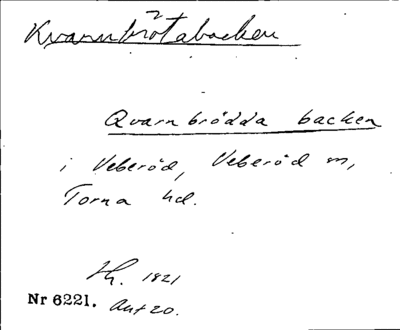 Kvarnbrötabacken
Qvarnbrödda backen
i Veberöd, Veberöd sn,
Torna hd.
Hh. 1821
Nr 6221. Ant 20.